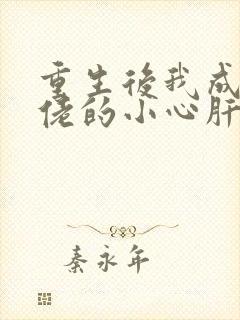 重生後我成
佬的小心肝
秦永年